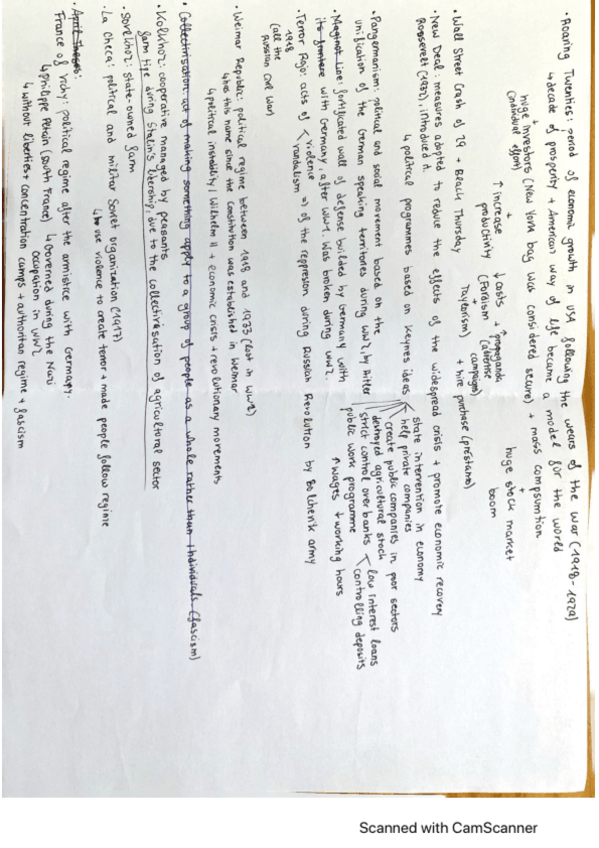 · Roaring Twenties: period of economic growth in USA following the wears of the war (1918-1929)
↳ decade of prosperity + American way of life became a model for the world
huge investors (New York bag was considered secure) + mass compsumtion
(individual effort)
↑ increase productivity
↓ costs (Fordism + Taylorism)
↑ propaganda (electoral campaigns) + hire purchase (préstamo)
huge stock market boom
· Wall Street Crash of 29 + Black Thursday
· New Deal: measures adopted to reduce the effects of the widespread crisis + promote economic recovery
Roosevelt (1932), introduced it.
↳ political programmes based on Keynes ideas
state intervention in economy
help private companies
create public companies in poor sectors
destroyed agricultural stock
strict control over banks
low interest loans
controlling deposits
public work programme
↑ wages ↓ working hours
· Pangermanism: political and social movement based on the
unification of the German speaking territories during WW2, by Hitler
· Maginot Line: fortificated wall of defense builded by Germany with
its frontere with Germany, after WW1. Was broken during WW2.
· Terror Rojo: acts of violence
vandalism
of the repression during Russian Revolution by Bolchevik army
1918
(all the
Russian civil war)
· Weimar Republic: political regime between 1918 and 1933 (lost in WW2)
↳ has this name since the Constitution was established in Weimar
↳ political instability, Wilhelm II + economic crisis + revolutionary movements
· Collectivisation: act of making something apply to a group of people as a whole rather than individuals (fascism)
· Kolkhoz: cooperative managed by peasants
farm type during Stalin's litership, due to the collectivisation of agricultural sector
· Sovkhoz: state-owned farm
· La Checa: political and militar Soviet organization (1917)
↳ use violence to create terror + made people follow regime
· April Theses:
France of Vichy: political regime after the armistice with Germany.
↳ Philippe Petain (south France) ↳ Governed during the Nazi
occupation in WW2
↳ without liberties + concentration camps + authoritan regime + fascism
Scanned with CamScanner